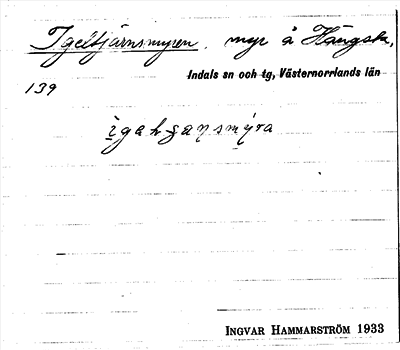 Igeltjärnsmyren, myr å Hängsta,
Indals sn och tg, Västernorrlands län
139
INGVAR HAMMARSTRÖM 1933